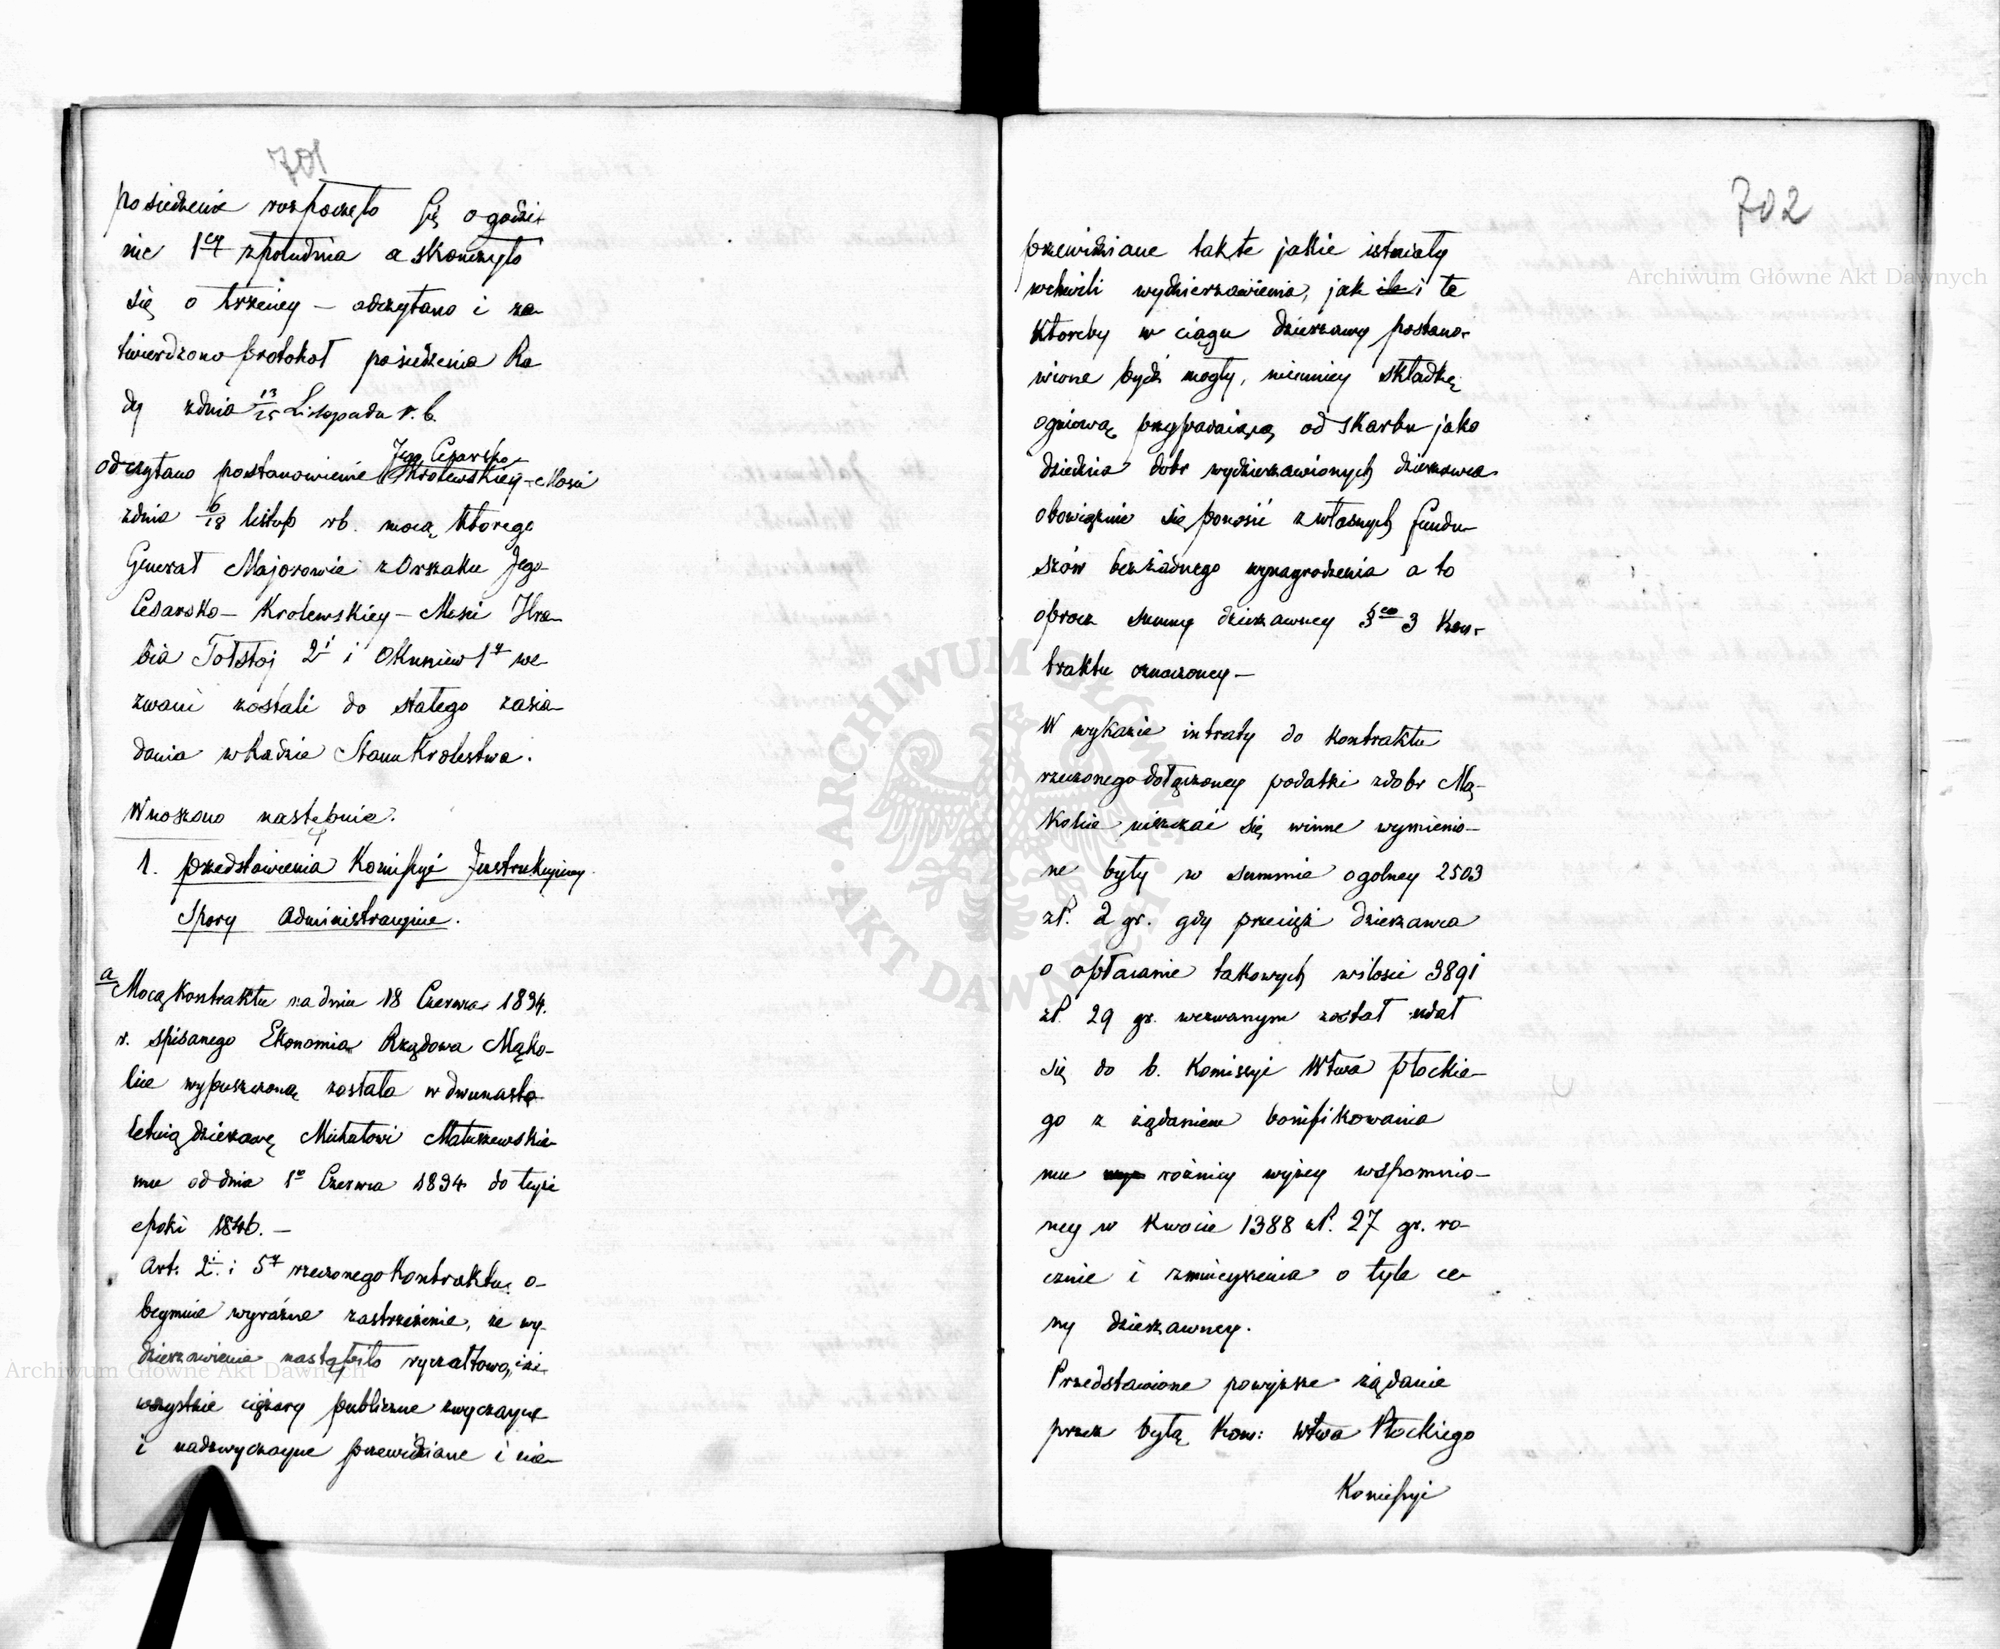 701
posiedzenie rozpoczęło się o godzi-
nie 1ey z południa a skonczyło
się o trzeciey — odczytano i za-
twierdzono protokoł posiedzenia Ra
dy z dnia 13/25 Listopadu r. b.
Jego Cesarsko-
odczytano postanowienie Krolewskiey-Mosci
z dnia 6/18 listop rb. mocą ktorego
Generał Majorowie z Orszaku Jego
Cesarsko — Krolewskiey — Mosci Hra-
bia Tołstoj 2i i Okuniew 1y we-
zwani zostali do stałego zasia-
dania w Radzie Stanu Krolestwa.
Wnoszono następnie.
1. przedstawienia Komissyi Instrukcyiney
Spory administracyine.
a Mocą Kontraktu na dniu 18 Czerwca 1834.
r. spisanego Ekonomia Rządowa Mąko-
lice wypuszczoną została w dwunasto-
letnią dzierzawę Michałowi Matuszewskie-
mu od dnia 1o Czerwca 1834 do teyże
epoki 1846. —
Art. 2i. i 5y rzeczonego Kontraktu o-
beymuie wyrazne zastrzeżenie, że wy-
dzierzawienie nastąpiło ryczałtowo, iż
wszystkie ciężary publiczne zwyczayne
i nadzwyczayne przewidziane i nie-
702
przewidziane tak te jakie istniały
w chwili wydzierzawienia, jak i te
ktoreby w ciągu dzierzawy postano-
wione bydź mogły, niemniey składkę
ogniową przypadaiącą od skarbu jako
dziedzica dobr wydzierzawionych dzierzawca
obowiązuie się ponosić z własnych fundu-
szów bez żadnego wynagrodzenia a to
oprocz summy dzierzawney §co 3 Kon-
traktu oznaczoney —
W wykazie intraty do kontraktu
rzeczonego dołączoney podatki z dobr Mą-
kolice uiszczać się winne wymienio-
ne były w summie ogolney 2503
zł. 2 gr. gdy przecież dzierzawca
o opłacanie takowych w ilosci 3891
zł. 29 gr. wezwanym został udał
się do b. Komissyi Wtwa Płockie-
go z żądaniem bonifikowania
mu rożnicy wyżey wspomnio-
ney w kwocie 1388 zł. 27 gr. ro-
cznie i zmnieyszenia o tyle ce-
ny dzierzawney.
Przedstawione powyższe żądanie
przez byłą Kom: Wtwa Płockiego
Komissyi
Archiwum Główne Akt Dawnych
Archiwum Główne Akt Dawnych
ARCHIWUM GŁÓWNE AKT DAWNYCH